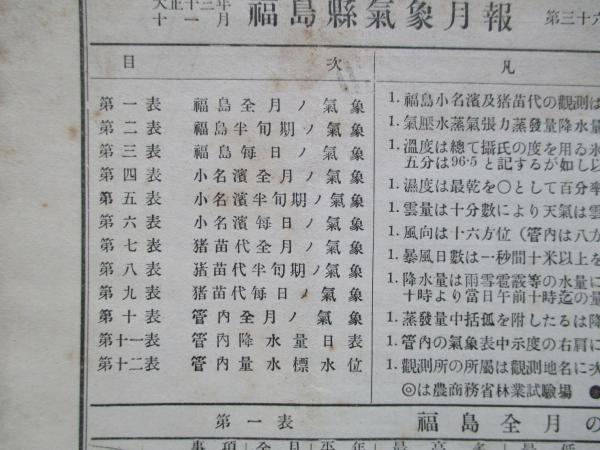 大正十三年
十一月
福島縣氣象月報
第三十六
目次
第一表 福島全月ノ氣象
第二表 福島半旬期ノ氣象
第三表 福島每日ノ氣象
第四表 小名濱全月ノ氣象
第五表 小名濱半旬期ノ氣象
第六表 小名濱每日ノ氣象
第七表 猪苗代全月ノ氣象
第八表 猪苗代半旬期ノ氣象
第九表 猪苗代每日ノ氣象
第十表 管內全月ノ氣象
第十一表 管內降水量日表
第十二表 管內量水標水位
凡
1. 福島小名濱及猪苗代の觀測は
1. 氣壓水蒸氣張力蒸發量降水量
1. 溫度は總て攝氏の度を用ゐ氷
五分は96.5と記するが如し以
1. 濕度は最乾を〇として百分率
1. 雲量は十分數により天氣は雲
1. 風向は十六方位（管內は八方
1. 暴風日數は一秒間十米以上を
1. 降水量は雨雪雹霰等の水量に
十時より當日午前十時迄の量
1. 蒸發量中括孤を附したるは降
1. 管內の氣象表中示度の右肩に
1. 觀測所の所屬は觀測地名に次
◎は農商務省林業試驗場 ●
第一表 福島全月の
事項 全月 平年 最高 最低